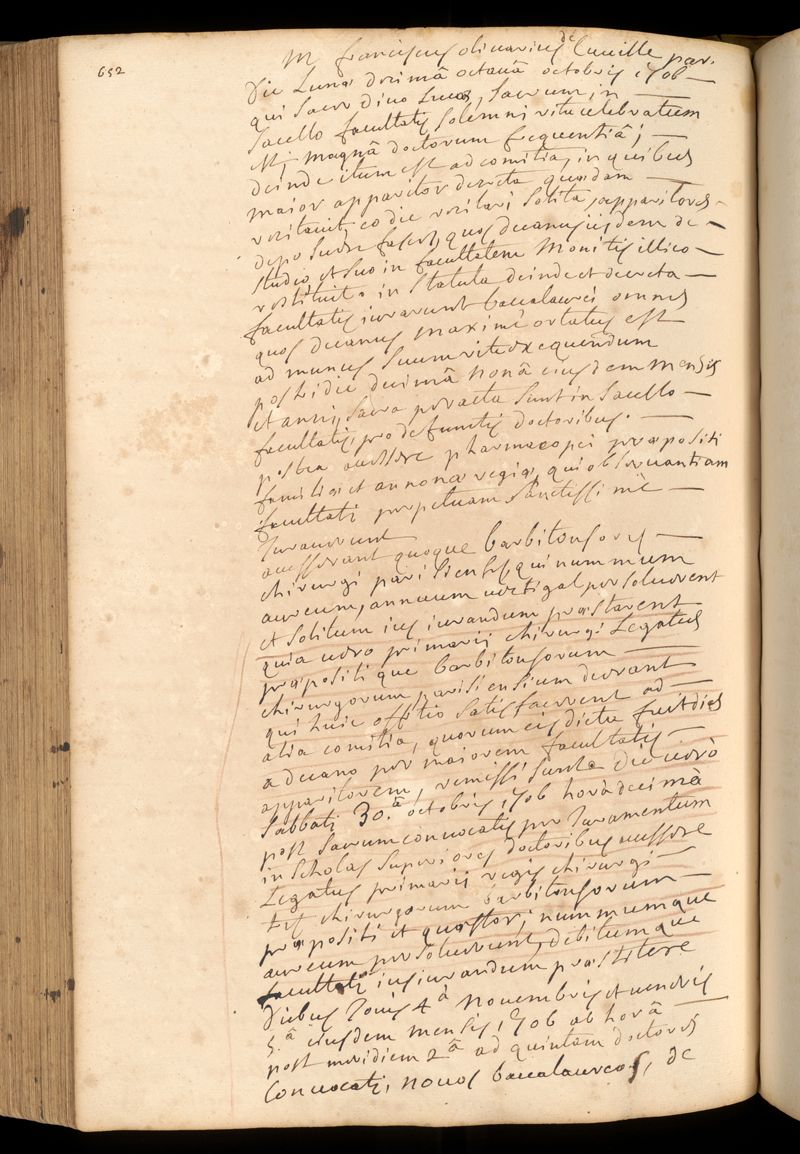 652
M. franciscus olivarius de Cuville par.
Die Lunae decimâ octavâ octobris 1706 —
qui sacer divo Lucae, sacrum in —
sacello facultatis solemni ritu celebratum
est, magnâ doctorum frequentiâ; —
deinde itum est ad comitia, in quibus
maior apparitor decreta quaedam —
recitavit, eo die recitari solita, apparitores
deposuere fasces, quos decanus iisdem de —
studio et suo in facultatem monitis illico —
restituit. in statuta deinde et decreta —
facultatis iuraverunt baccalaurei omnes
quos decanus maximè ortatus est
ad munus suum rite exequendum
postridie decimâ nonâ eiusdem mensis
et anni, sacra peracta sunt in sacello —
facultatis, pro defunctis doctoribus. —
postea accessere pharmacopei praepositi
familiae et annonae regiae, qui observantiam
facultati perpetuam sanctissimè —
Iuraverunt
accesserant quoque barbitonsores —
chirurgi parisienses, qui nummum
aureum, annuum vectigal persolverent
et solitum ius iurandum praestarent
quia vero primarii chirurgi Legatus
praepositi que barbitonsorum —
chirurgorum parisiensium deerant
qui huic officio satisfacerent ad —
alia comitia, quorum eis dicta fuit dies
a decano per maiorem facultatis —
apparitorem, remissi sunt. Die verò
sabbati 30.â octobris 1706 horâ decimâ
post sacrum convocatis per Iuramentum
in scholas superiores doctoribus accessere
Legatus primarii regis chirurgi —
tres chirurgorum barbitonsorum —
praepositi et quaestor; nummumque
aureum persolverunt, debitumque
facultati iusiurandum praestitere
Diebus Iovis 4â Novembris et veneris
5.â eiusdem mensis, 1706 ab horâ —
post meridiem 2â ad quintam doctores
Convocati, novos baccalaureos, de